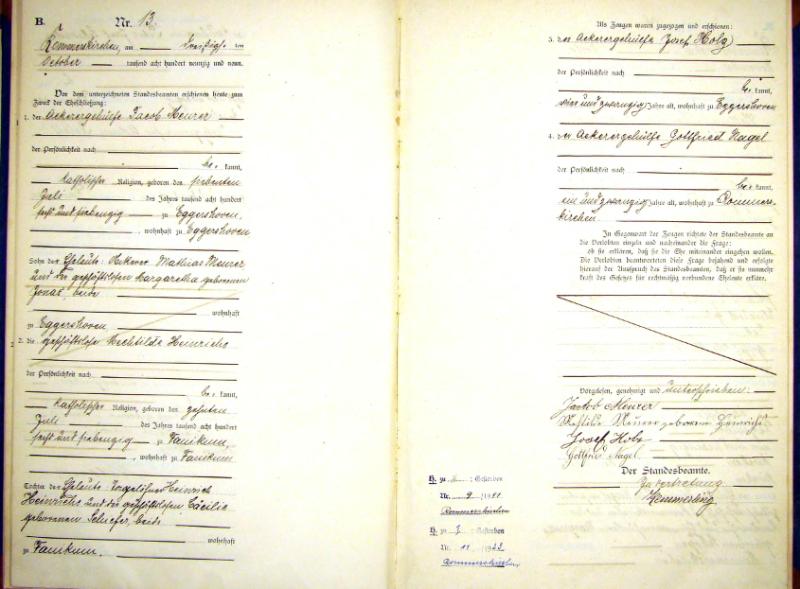 B.
Nr. 13.
Rommerskirchen, am dreißigsten
October tausend acht hundert neunzig und neun.
Vor dem unterzeichneten Standesbeamten erschienen heute zum
Zweck der Eheschließung:
1. der Ackerergehülfe Jacob Meurer
der Persönlichkeit nach
be kannt,
katholischer Religion, geboren den siebenten
Juli des Jahres tausend acht hundert
sechs und siebenzig zu Eggershoven,
, wohnhaft zu Eggershoven
Sohn der Eheleute Ackerer Mathias Meurer
und der geschäftslosen Margaretha geborenen
beide
wohnhaft
zu Eggershoven
2. die geschäftslose Mechtilde Heinrichs
der Persönlichkeit nach
be kannt,
katholischer Religion, geboren den zehnten
Juli des Jahres tausend acht hundert
sechs und siebenzig zu Vanikum,
, wohnhaft zu Vanikum
Tochter der Eheleute Tagelöhner Heinrich
Heinrichs und der geschäftslosen Cäcilia
geborenen Schiefer, beide
wohnhaft
zu Vanikum.
Als Zeugen waren zugezogen und erschienen:
3. der Ackerergehülfe Josef Holz
der Persönlichkeit nach
be kannt,
vier und zwanzig Jahre alt, wohnhaft zu Eggershoven
4. der Ackerergehülfe Gottfried Nagel
der Persönlichkeit nach
be kannt,
ein und zwanzig Jahre alt, wohnhaft zu Rommers-
kirchen.
In Gegenwart der Zeugen richtete der Standesbeamte an
die Verlobten einzeln und nacheinander die Frage:
ob sie erklären, daß sie die Ehe miteinander eingehen wollen.
Die Verlobten beantworteten diese Frage bejahend und erfolgte
hierauf der Ausspruch des Standesbeamten, daß er sie nunmehr
kraft des Gesetzes für rechtmäßig verbundene Eheleute erkläre.
Vorgelesen, genehmigt und unterschrieben:
Jacob Meurer
Mechtilde Meurer geborene Heinrichs
Josef Holz
Gottfried Nagel
Der Standesbeamte.
In Vertretung
Hemmerling
H. zu : Gestorben
Nr. 9 /19
Rommerskirchen
H. zu : Gestorben
Nr. 11 /19
Rommerskirchen